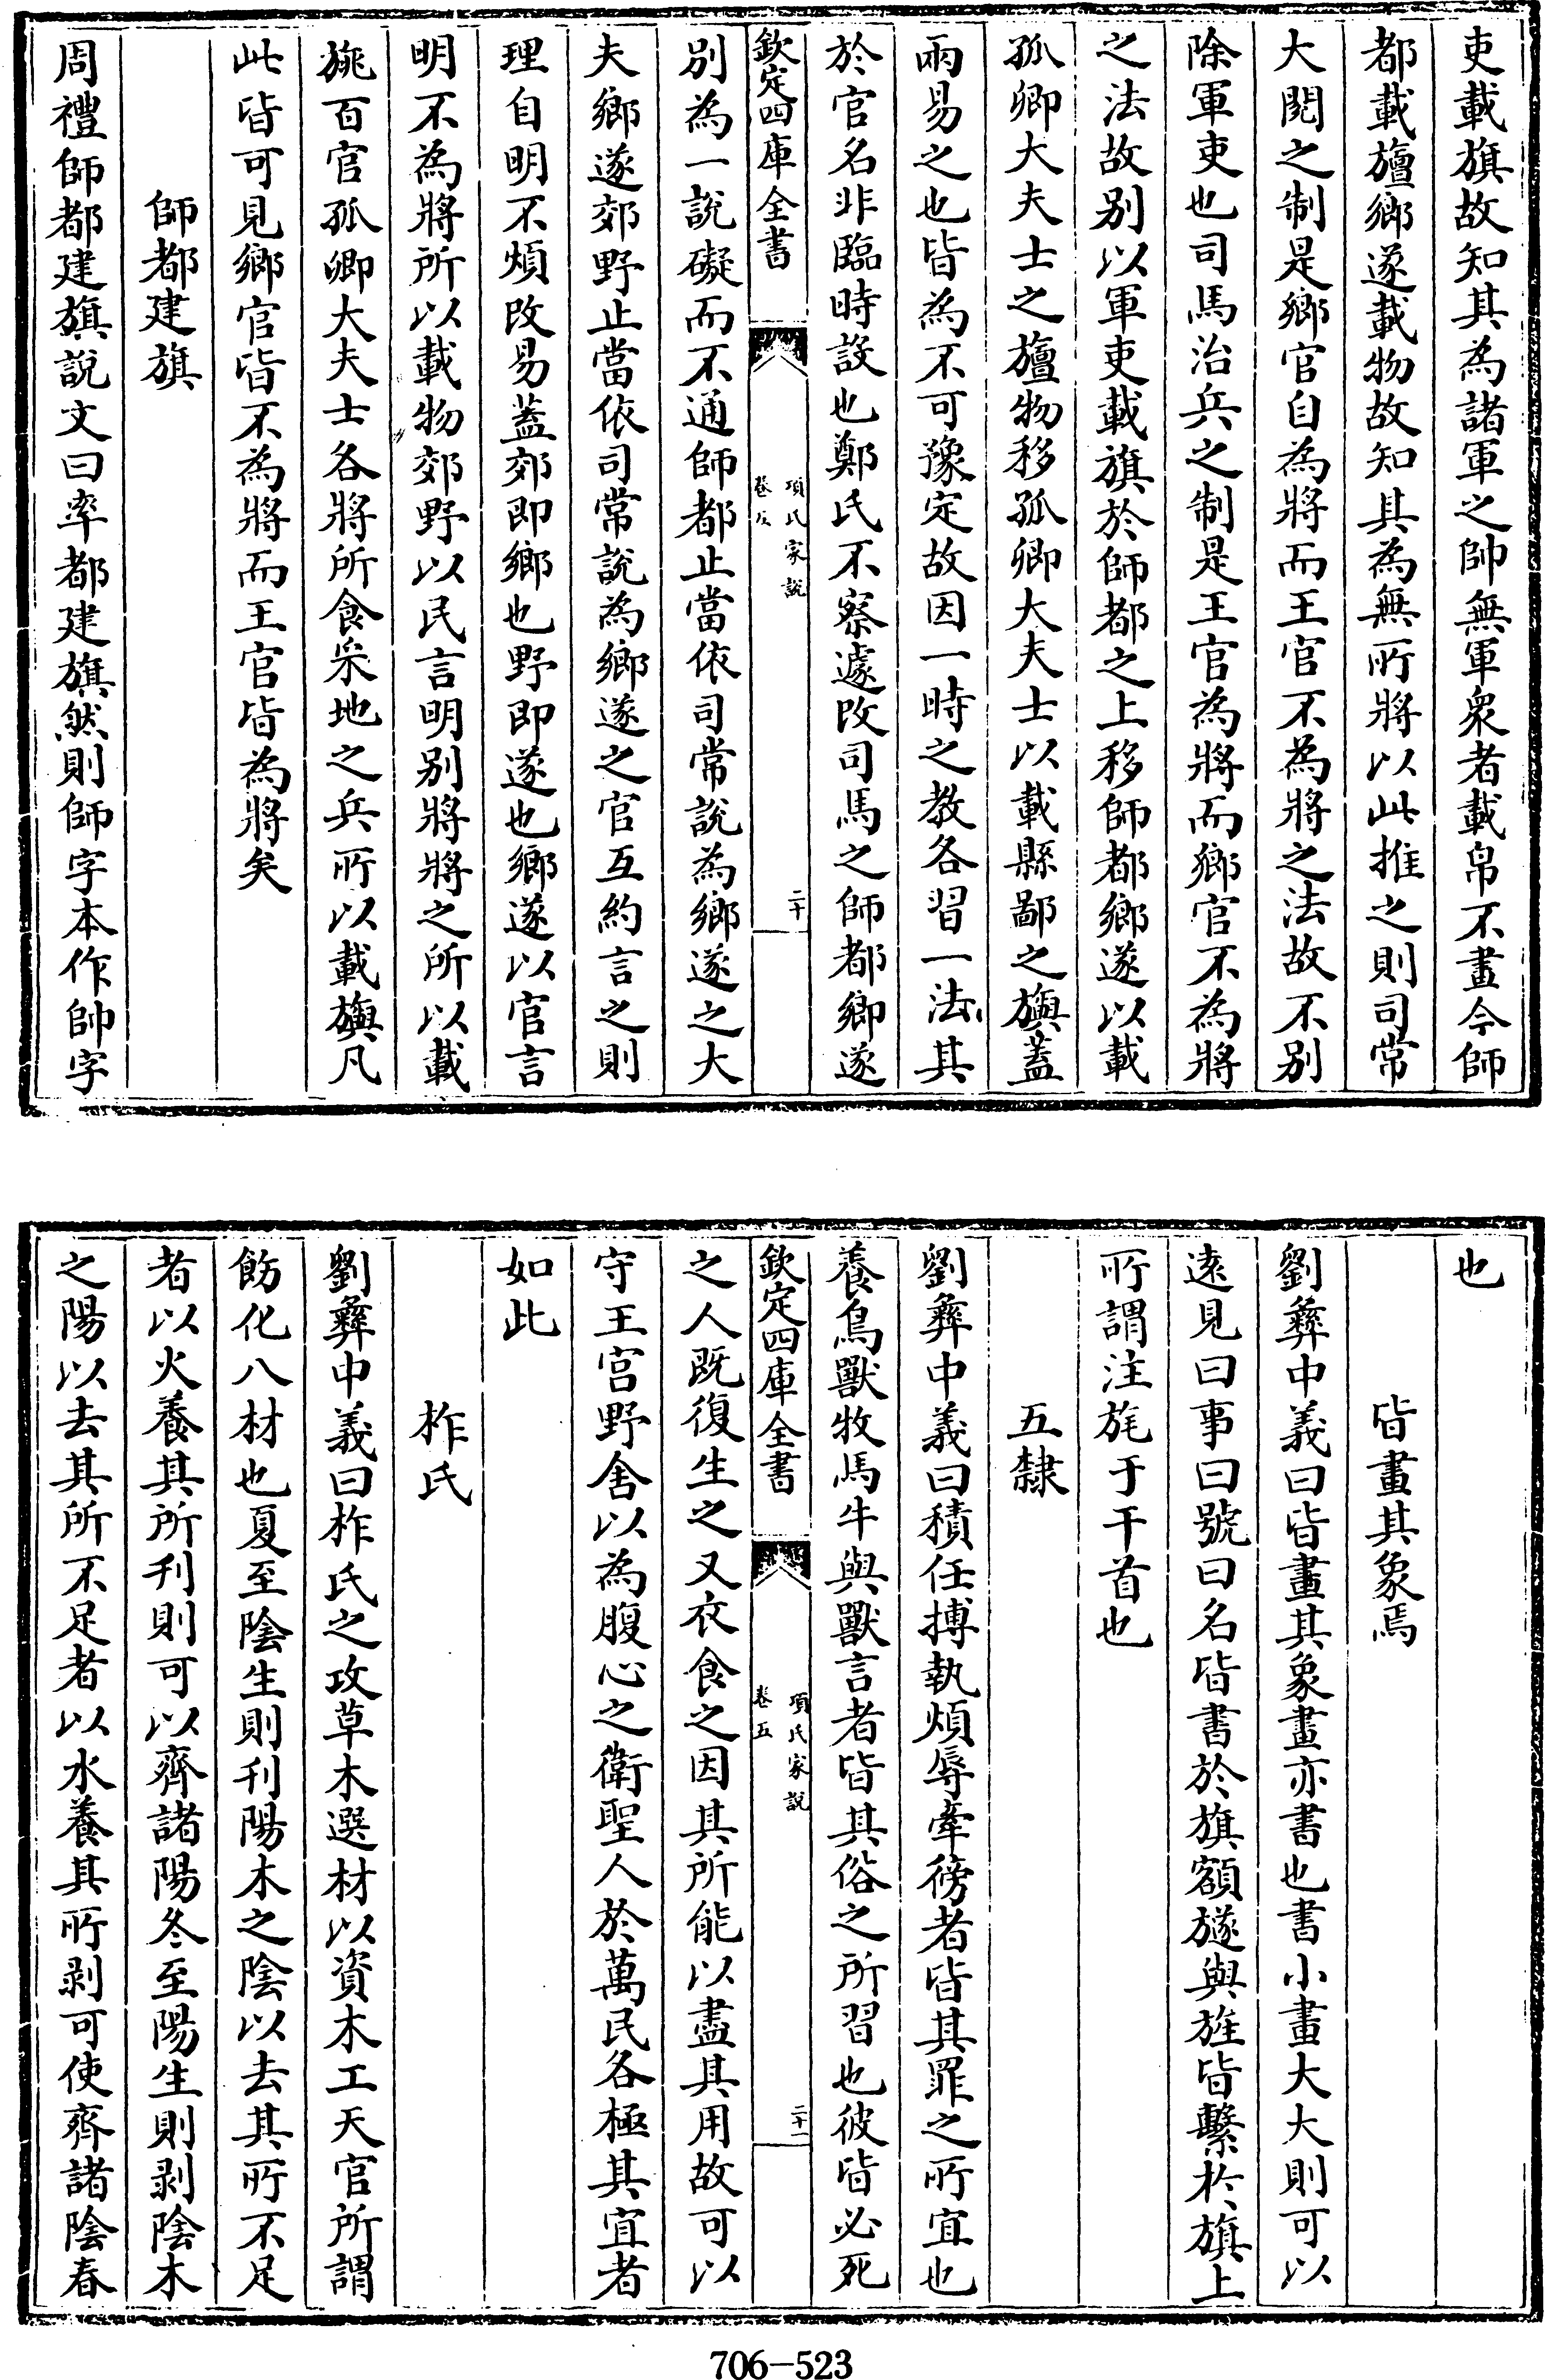 吏載旗故知其為諸軍之帥無軍衆者載帛不畫今師
都載旜鄉遂載物故知其為無所將以此推之則司常
大閱之制是鄉官自為將而王官不為將之法故不别
除軍吏也司馬治兵之制是王官為將而鄉官不為將
之法故别以軍吏載旗於師都之上移師都鄉遂以載
孤卿大夫士之旜物移孤卿大夫士以載縣鄙之旟蓋
兩易之也皆為不可豫定故因一時之教各習一法其
於官名非臨時設也鄭氏不察遽改司馬之師都鄉遂
欽定四庫全書
項氏家說
卷五
二十
别為一說礙而不通師都止當依司常說為鄉遂之大
夫鄉遂郊野止當依司常說為鄉遂之官互約言之則
理自明不煩改易蓋郊即鄉也野即遂也鄉遂以官言
明不為將所以載物郊野以民言明别將將之所以載
旐百官孤卿大夫士各將所食采地之兵所以載旟凡
此皆可見鄉官皆不為將而王官皆為將矣
師都建旗
周禮師都建旗說文曰率都建旗然則師字本作帥字
也
皆畫其象焉
劉彝中義曰皆畫其象畫亦書也書小畫大大則可以
遠見曰事曰號曰名皆書於旗額旞與旌皆繫於旗上
所謂注旄于干首也
五隸
劉彝中義曰積任搏執煩辱牽徬者皆其罪之所宜也
養鳥獸牧馬牛與獸言者皆其俗之所習也彼皆必死
欽定四庫全書
項氏家說
卷五
二十一
之人既復生之又衣食之因其所能以盡其用故可以
守王宫野舍以為腹心之衛聖人於萬民各極其宜者
如此
柞氏
劉彝中義曰柞氏之攻草木選材以資木工天官所謂
飭化八材也夏至陰生則刊陽木之陰以去其所不足
者以火養其所刊則可以齊諸陽冬至陽生則剥陰木
之陽以去其所不足者以水養其所剥可使齊諸陰春
706-523